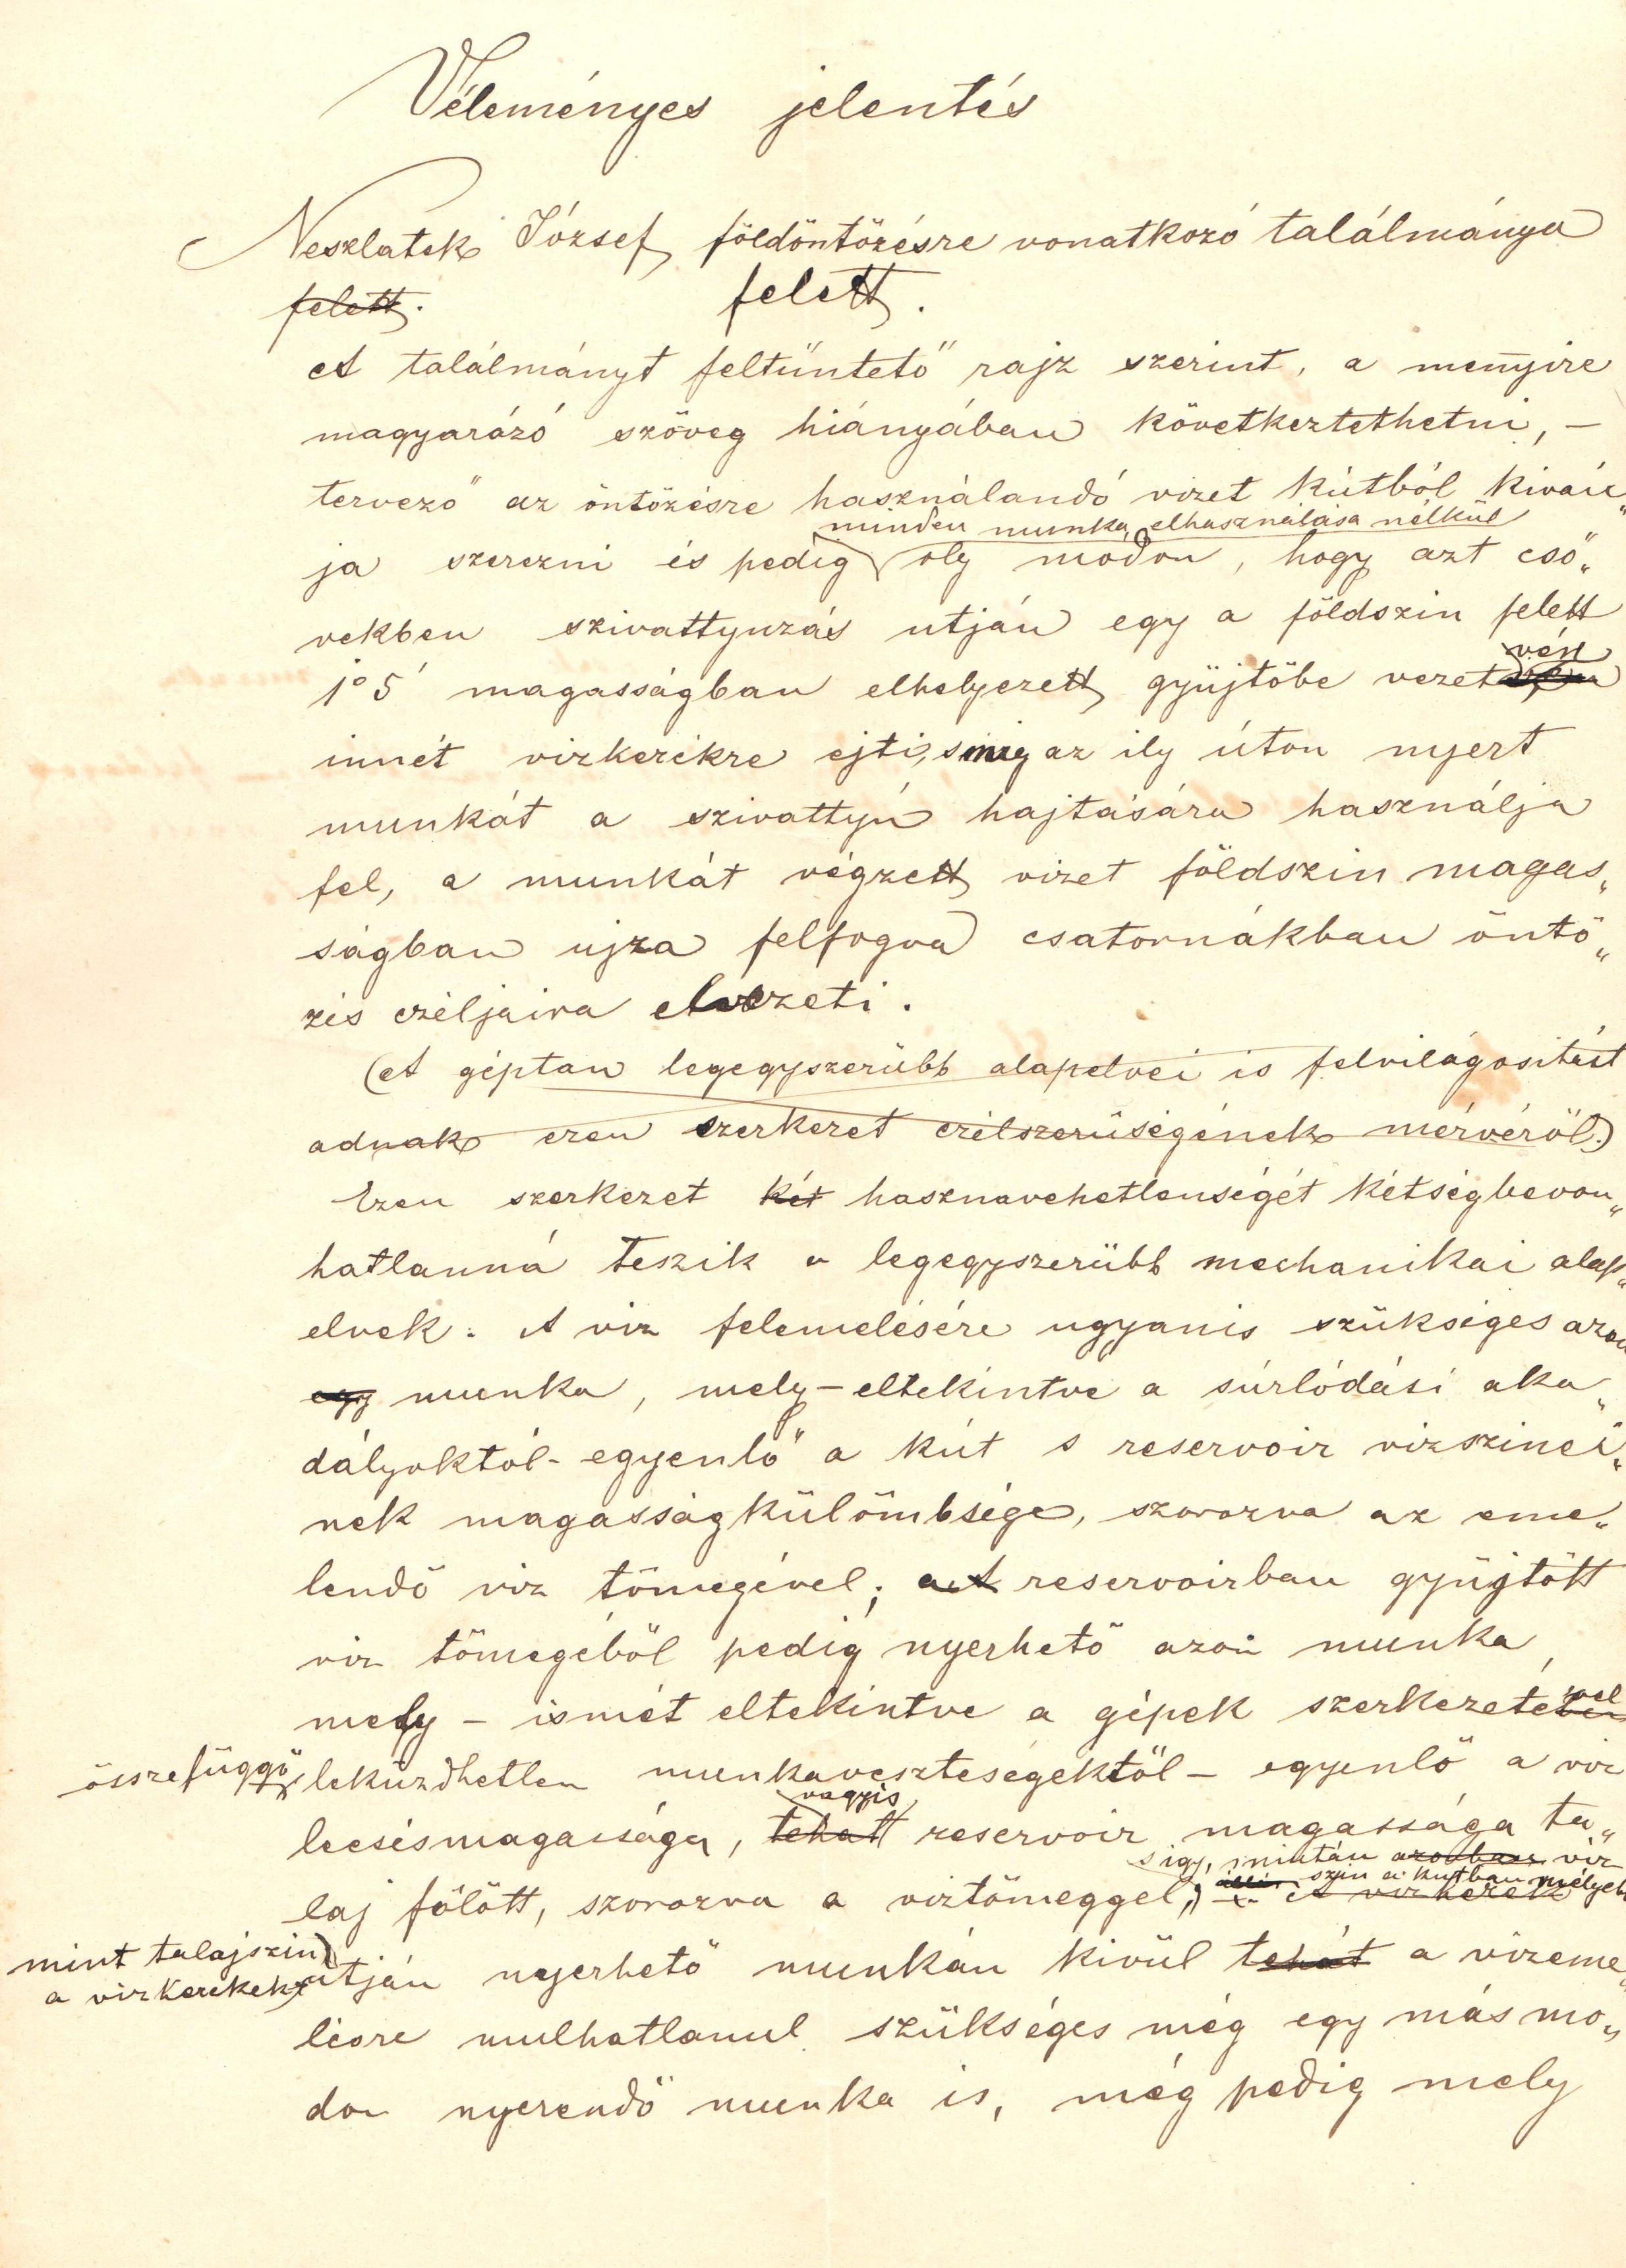 Véleményes jelentés
Neszlatek József földöntözésre vonatkozó találmánya
felett. felett.
A találmányt feltüntető rajz szerint, a menyire
magyarázó szöveg hiányában következtethetni, –
tervező az öntözésre használandó vizet kútból kiván„
minden munka elhasználása nélkül
ja szerezni és pedig oly módon, hogy azt cső„
vekben szivattyuzás utján egy a földszin felett
vén
1° 5' magasságban elhelyezett gyüjtöbe vezet
innét vizkerékre ejti, s mig az ily úton nyert
munkát a szivattyú hajtására használja
fel, a munkát végzett vizet földszin magas„
ságban ujra felfogva csatornákban öntö„
zés czéljaira elvezeti.
(A géptan legegyszerübb alapelvei is felvilágositást
adnak ezen szerkezet czélszerüségének mérvéröl.)
Ezen szerkezet két hasznavehetlenségét kétségbevon„
hatlanná teszik a legegyszerübb mechanikai alap„
elvek. A viz felemelésére ugyanis szükséges azon
egy munka, mely – eltekintve a súrlódási aka„
dályoktól – egyenlő a kút s reservoir vizszinei„
nek magasságkülömbsége, szorozva az eme„
lendő viz tömegével; a A reservoirban gyüjtött
viz tömegéböl pedig nyerhető azon munka,
mely – ismét eltekintve a gépek szerkezetében vel
összefüggő leküzdhetlen munkaveszteségektöl – egyenlő a viz
vagyis
leesésmagassága, tehát reservoir magassága ta„
s igy, miután azonban viz
szin a kutban mélyebb
laj fölött, szorozva a viztömeggel, A vizkerék
mint talajszin
a vizkerekek utján nyerhető munkán kivül tehát a vizeme„
lésre mulhatlanul szükséges még egy más mo„
don nyerendő munka is, még pedig mely